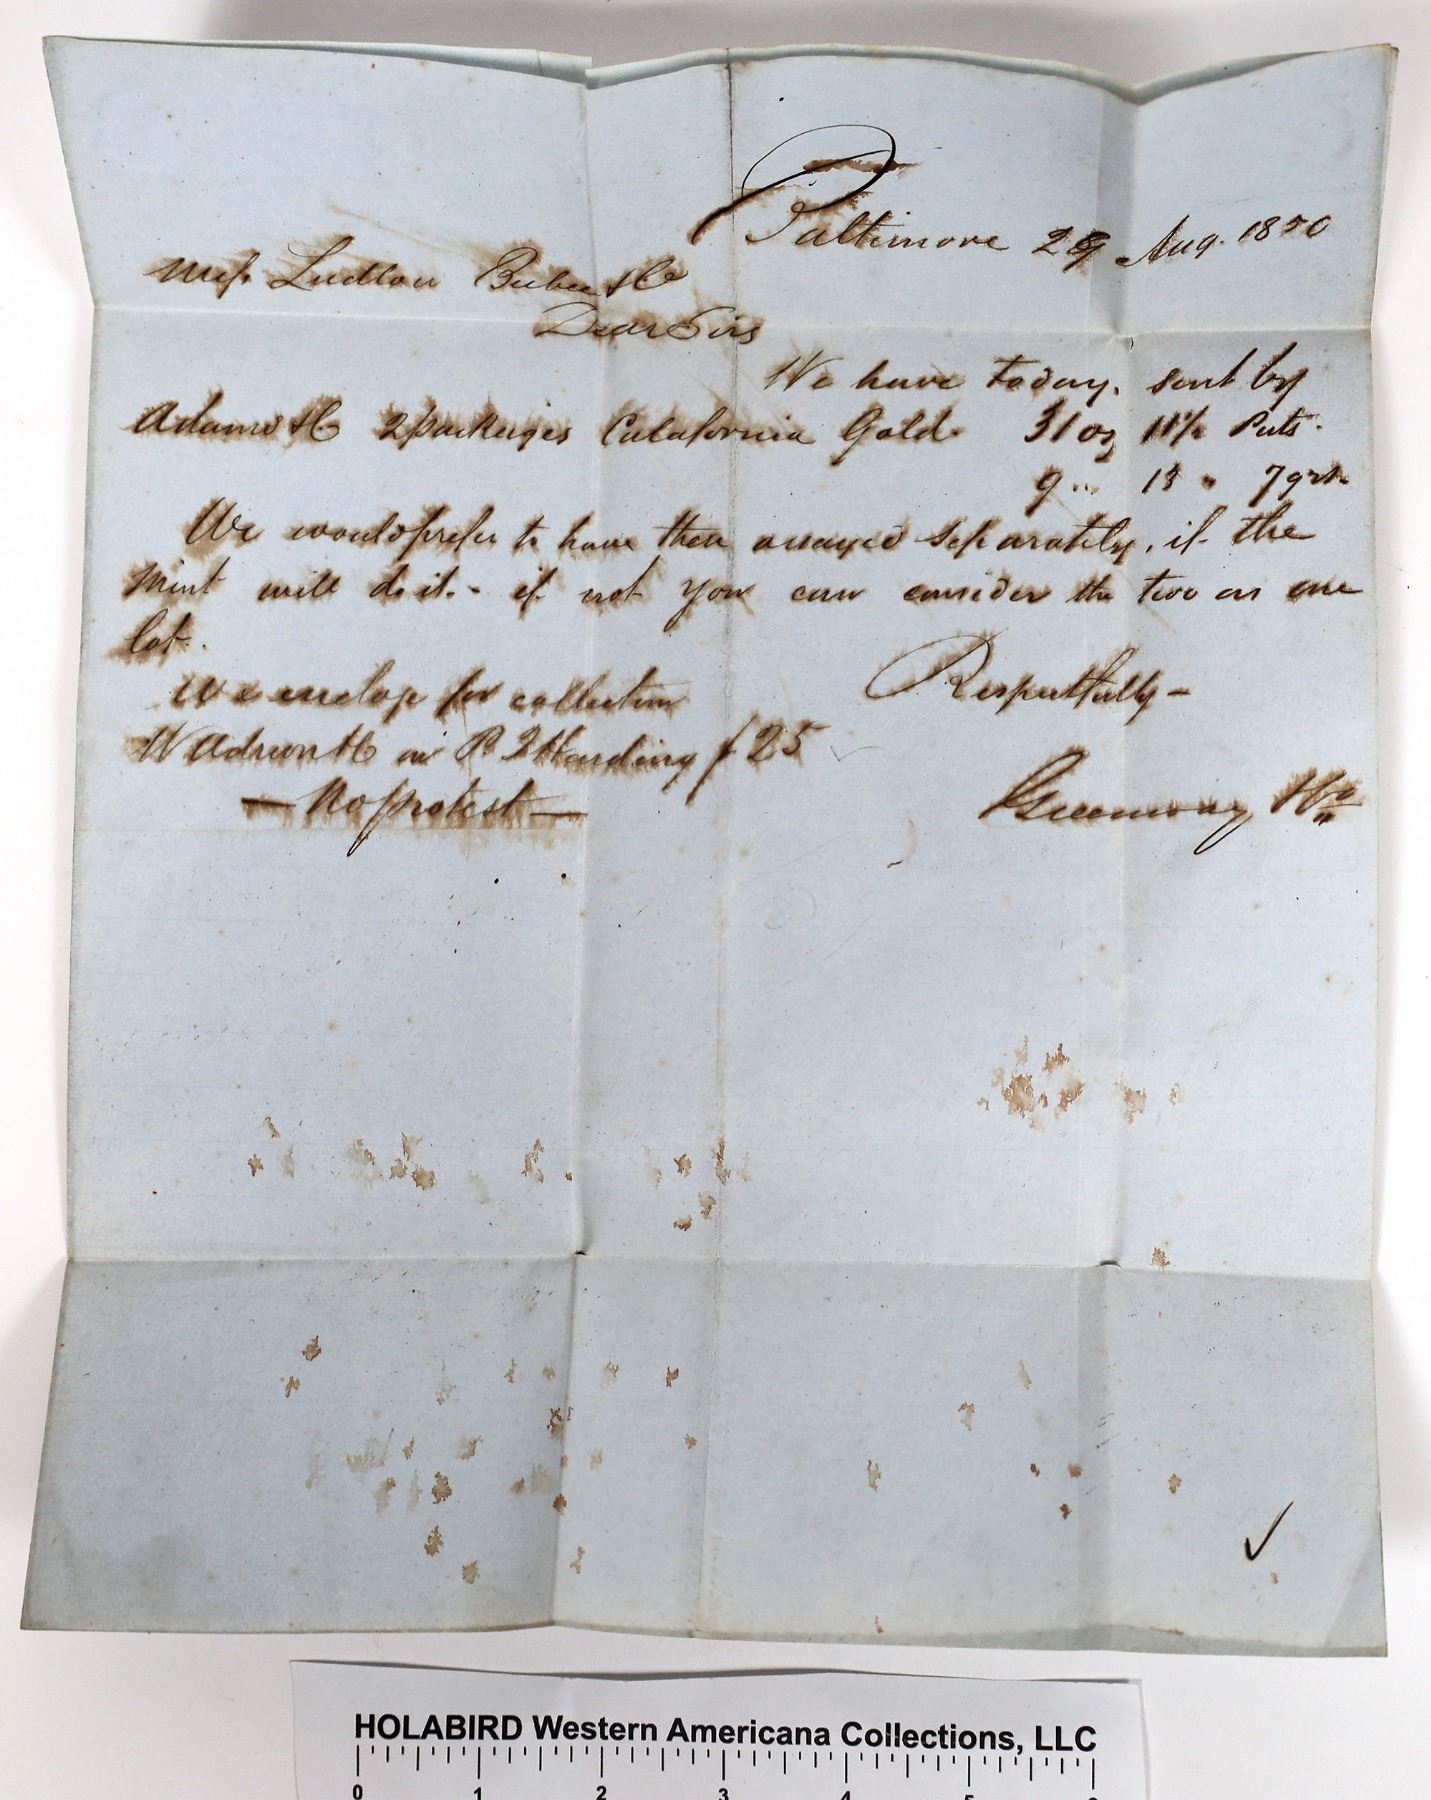 Baltimore 29 Aug. 1850
Mess. Ludlow Beebee & Co
Dear Sirs
We have today. sent by
Adams & Co 2 packages Calafornia Gold. 31 oz 11½ Pwts.
9 " 13 " 7 grs.
We would prefer to have them assayed separately, if the
Mint will do it. - if not you can consider the two as one
lot.
We enclose for collection
Respectfully -
W Adrian & Co on P. Harding $25
- No protest -
Greenway & Co
HOLABIRD Western Americana Collections, LLC
0 1 2 3 4 5